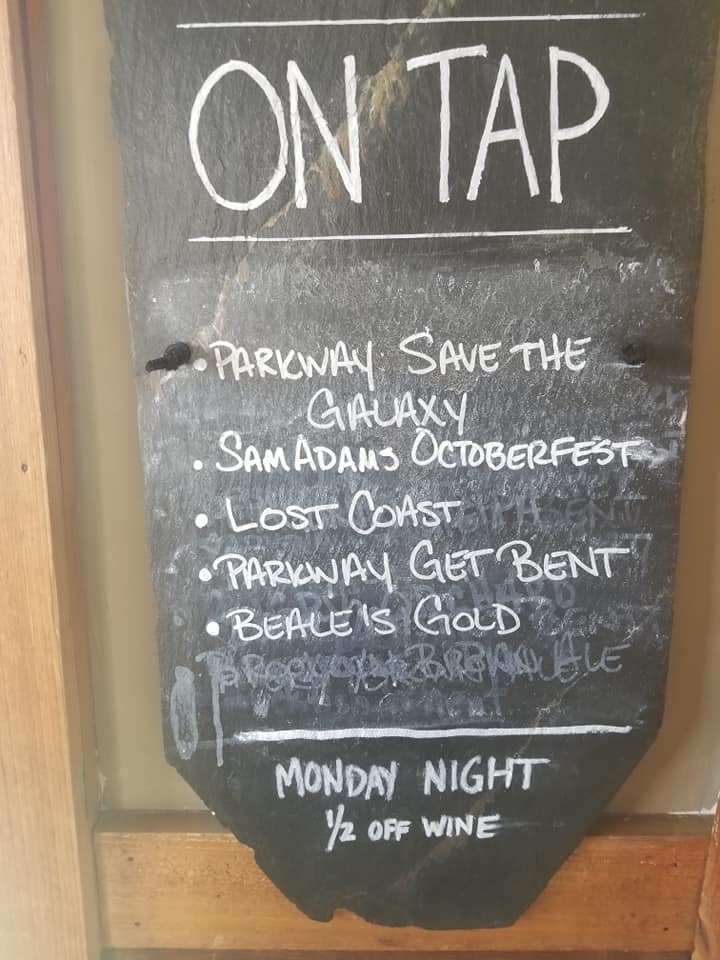 ON TAP
• PARKWAY SAVE THE
GALAXY
• SAM ADAMS OCTOBERFEST
• LOST COAST
• PARKWAY GET BENT
• BEALE'S GOLD
MONDAY NIGHT
1/2 OFF WINE